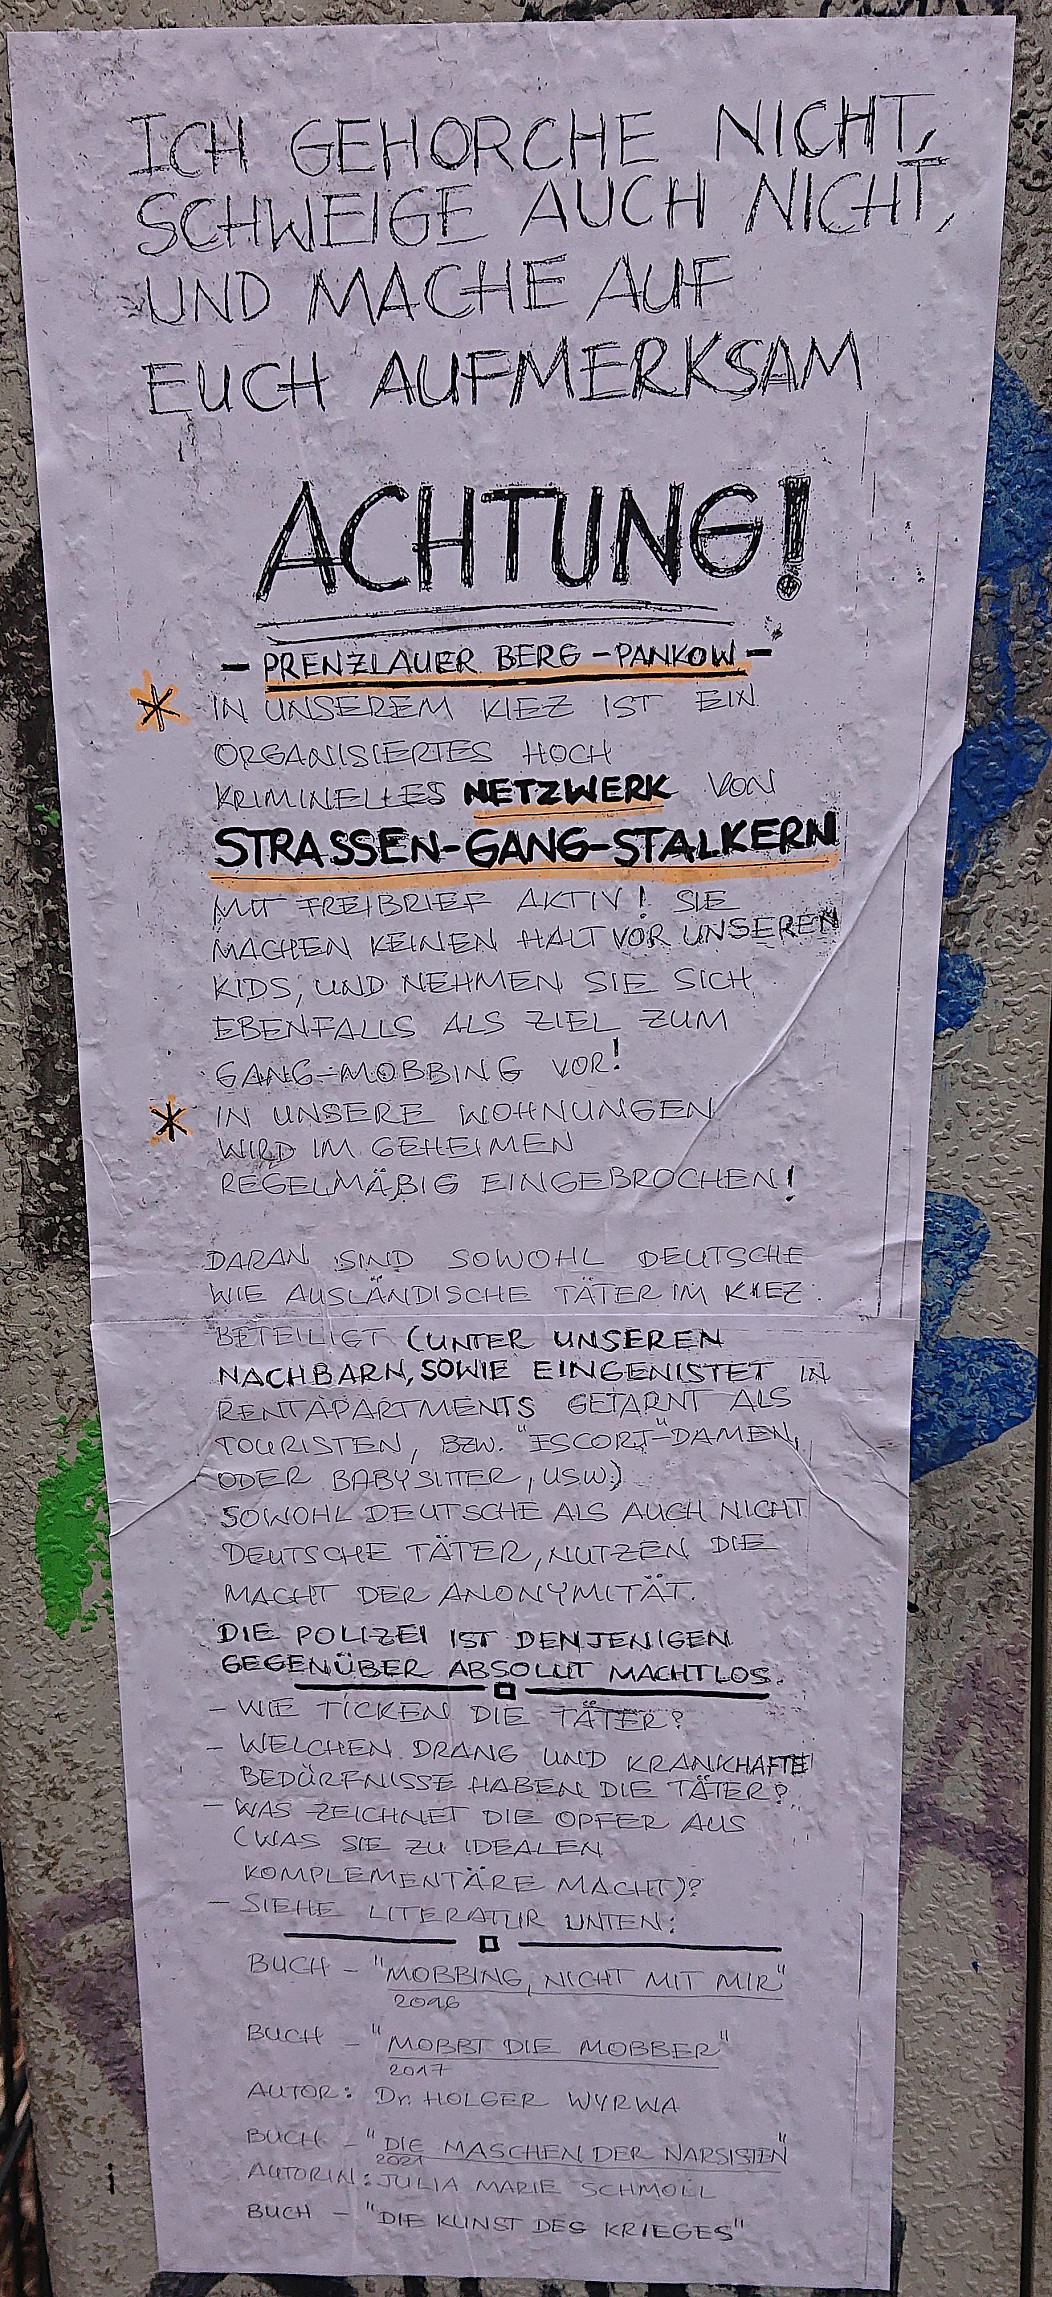 ICH GEHORCHE NICHT,
SCHWEIGE AUCH NICHT,
UND MACHE AUF
EUCH AUFMERKSAM
ACHTUNG!
- PRENZLAUER BERG - PANKOW -
* IN UNSEREM KIEZ IST EIN
ORGANISIERTES HOCH
KRIMINELLES NETZWERK VON
STRASSEN-GANG-STALKERN
MIT FREIBRIEF AKTIV! SIE
MACHEN KEINEN HALT VOR UNSEREN
KIDS, UND NEHMEN SIE SICH
EBENFALLS ALS ZIEL ZUM
GANG-MOBBING VOR!
* IN UNSERE WOHNUNGEN
WIRD IM GEHEIMEN
REGELMÄßIG EINGEBROCHEN!
DARAN SIND SOWOHL DEUTSCHE
WIE AUSLÄNDISCHE TÄTER IM KIEZ
BETEILIGT (UNTER UNSEREN
NACHBARN, SOWIE EINGENISTET IN
RENTAPARTMENTS GETARNT ALS
TOURISTEN, BZW. "ESCORT"-DAMEN,
ODER BABYSITTER, USW.)
SOWOHL DEUTSCHE ALS AUCH NICHT
DEUTSCHE TÄTER, NUTZEN DIE
MACHT DER ANONYMITÄT.
DIE POLIZEI IST DENJENIGEN
GEGENÜBER ABSOLUT MACHTLOS.
- WIE TICKEN DIE TÄTER?
- WELCHEN DRANG UND KRANKHAFTE
BEDÜRFNISSE HABEN DIE TÄTER?
- WAS ZEICHNET DIE OPFER AUS
(WAS SIE ZU IDEALEN
KOMPLEMENTÄRE MACHT)?
- SIEHE LITERATUR UNTEN:
BUCH - "MOBBING, NICHT MIT MIR"
2016
BUCH - "MOBBT DIE MOBBER"
2017
AUTOR: Dr. HOLGER WYRWA
BUCH - "DIE MASCHEN DER NARSISTEN"
2021
AUTORIN: JULIA MARIE SCHMOLL
BUCH - "DIE KUNST DES KRIEGES"